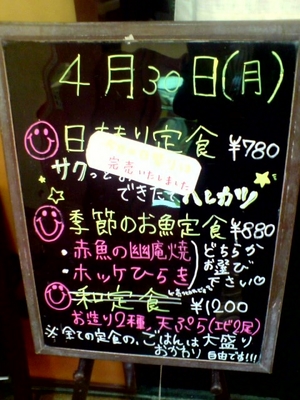 4月30日(月)
日替り定食 ¥780
完売いたしました
サクっと
できたて ハムカツ
季節のお魚定食 ¥880
・赤魚の幽庵焼
・ホッケひらき
どちらか
お選び
下さい♡
和定食 ¥1200
お造り2種、天ぷら(エビ2尾)
※全ての定食の、ごはんは大盛り
おかわり 自由です!!!